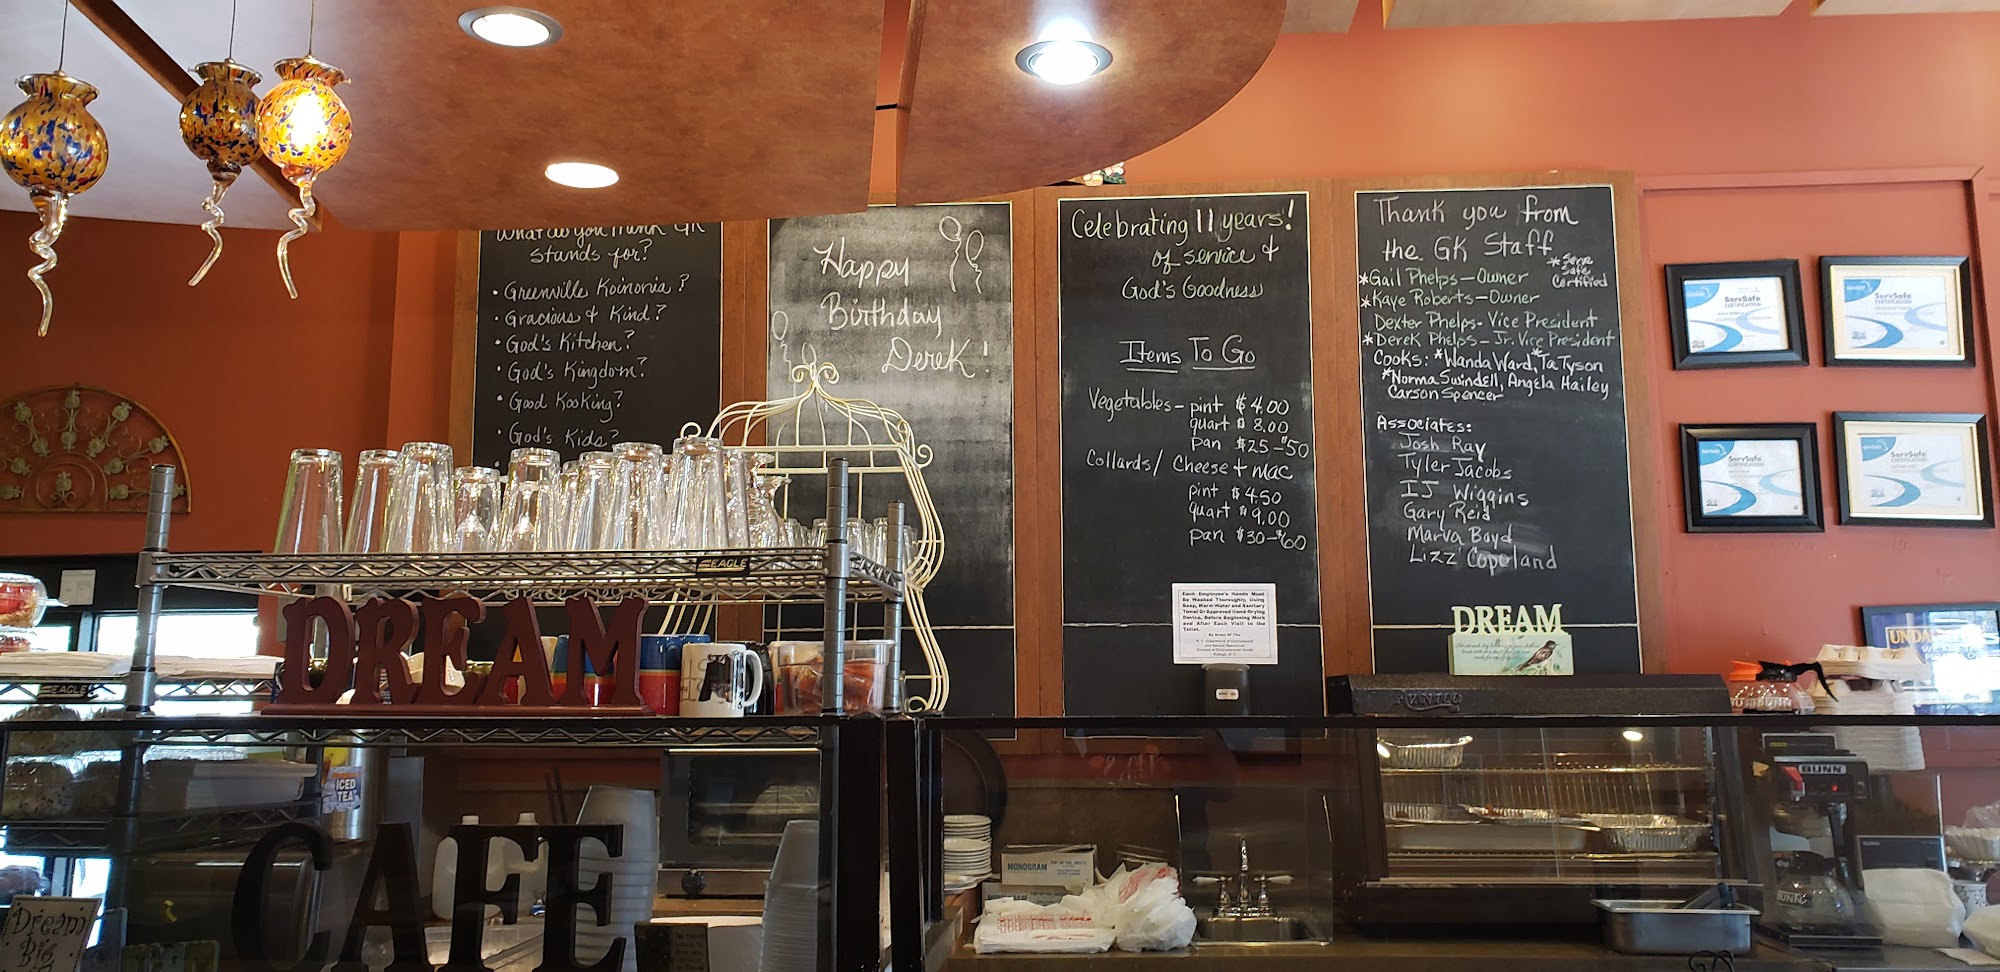 What do you think GK
stands for?
• Greenville Koinonia?
• Gracious & Kind?
• God's Kitchen?
• God's Kingdom?
• Good Kooking?
• God's Kids?
Happy
Birthday
Derek!
Celebrating 11 years!
of service &
God's Goodness
Items To Go
Vegetables - pint $4.00
quart $8.00
pan $25-$50
Collards/ Cheese + Mac
pint $4.50
quart $9.00
pan $30-$60
Thank you from
the GK Staff
*Serve
Safe
Certified
*Gail Phelps - Owner
*Kaye Roberts - Owner
Dexter Phelps - Vice President
*Derek Phelps - Jr. Vice President
Cooks: *Wanda Ward, *Ta Tyson
*Norma Swindell, Angela Hailey
Carson Spencer
Associates:
Josh Ray
Tyler Jacobs
IJ Wiggins
Gary Reid
Marva Boyd
Lizz Copeland
ServSafe
CERTIFICATION
ServSafe
CERTIFICATION
ServSafe
CERTIFICATION
ServSafe
CERTIFICATION
Each Employee's Hands Must
Be Washed Thoroughly, Using
Soap, Warm Water and Sanitary
Towel Or Approved Hand-Drying
Device, Before Beginning Work
and After Each Visit to the
Toilet.
By Order Of The
DREAM
EAGLE
EAGLE
DREAM
ICED
TEA
CAFE
Dream
Big
MONOGRAM
BUNN
BUNN
BUNN